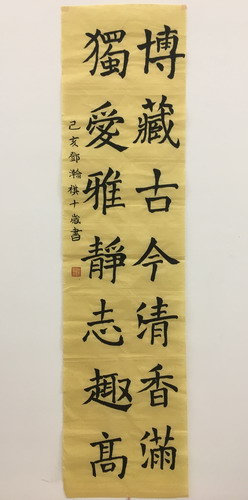 博藏古今清香滿
獨愛雅靜志趣高
己亥鄧瀚棋十歲書